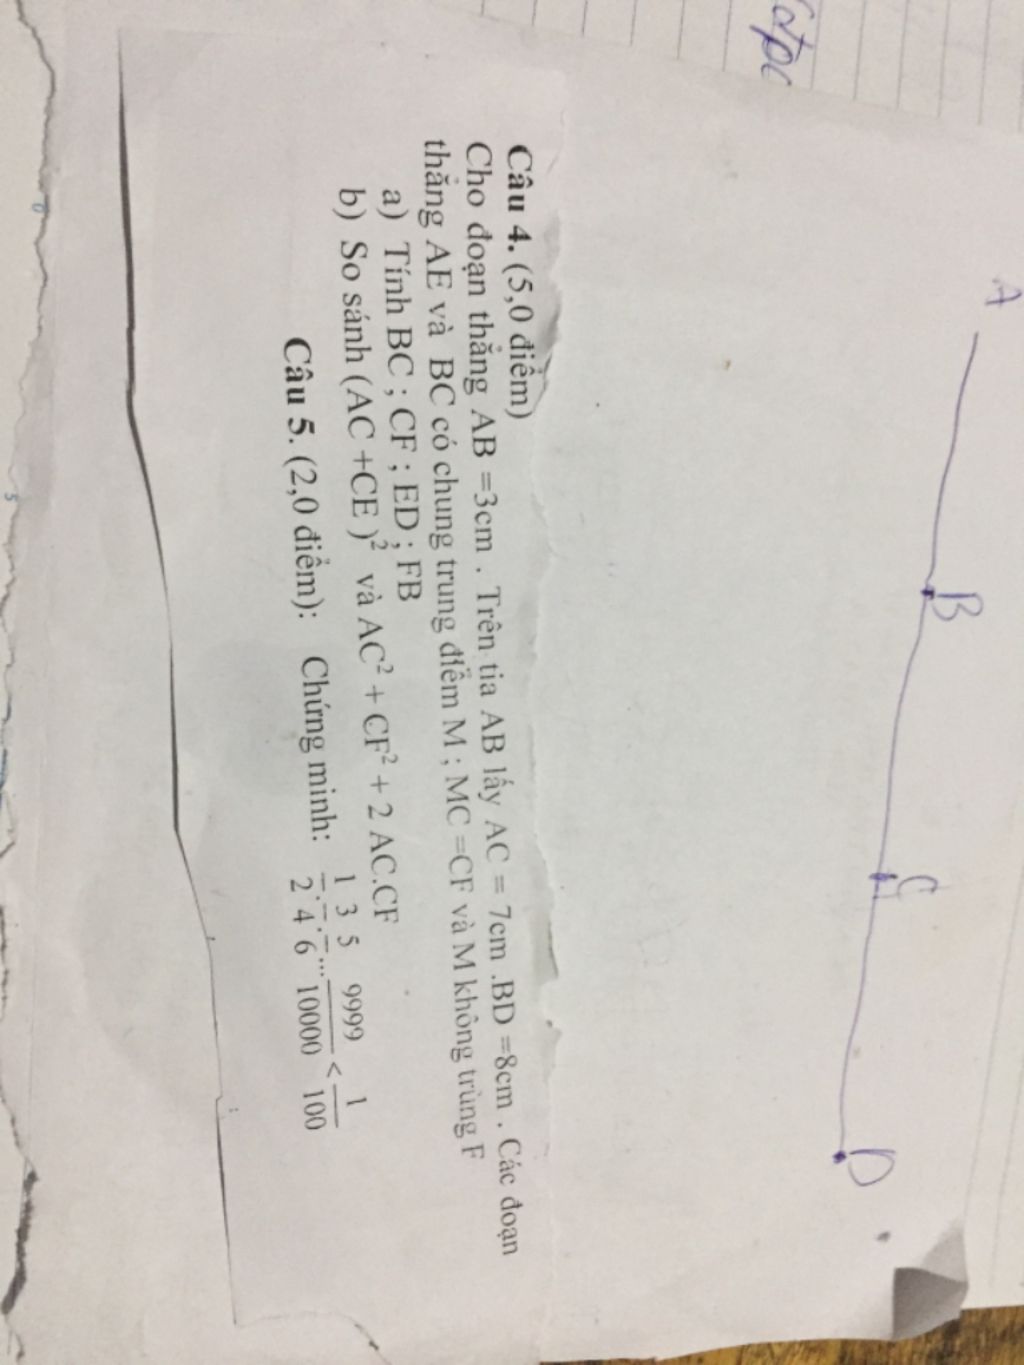 A B C D
Câu 4. (5,0 điểm)
Cho đoạn thẳng AB =3cm . Trên tia AB lấy AC = 7cm .BD =8cm . Các đoạn
thẳng AE và BC có chung trung điểm M ; MC =CF và M không trùng F
a) Tính BC ; CF ; ED ; FB
b) So sánh (AC +CE )² và AC² + CF² + 2 AC.CF
Câu 5. (2,0 điểm): Chứng minh: 1/2 . 3/4 . 5/6 ... 9999/10000 < 1/100